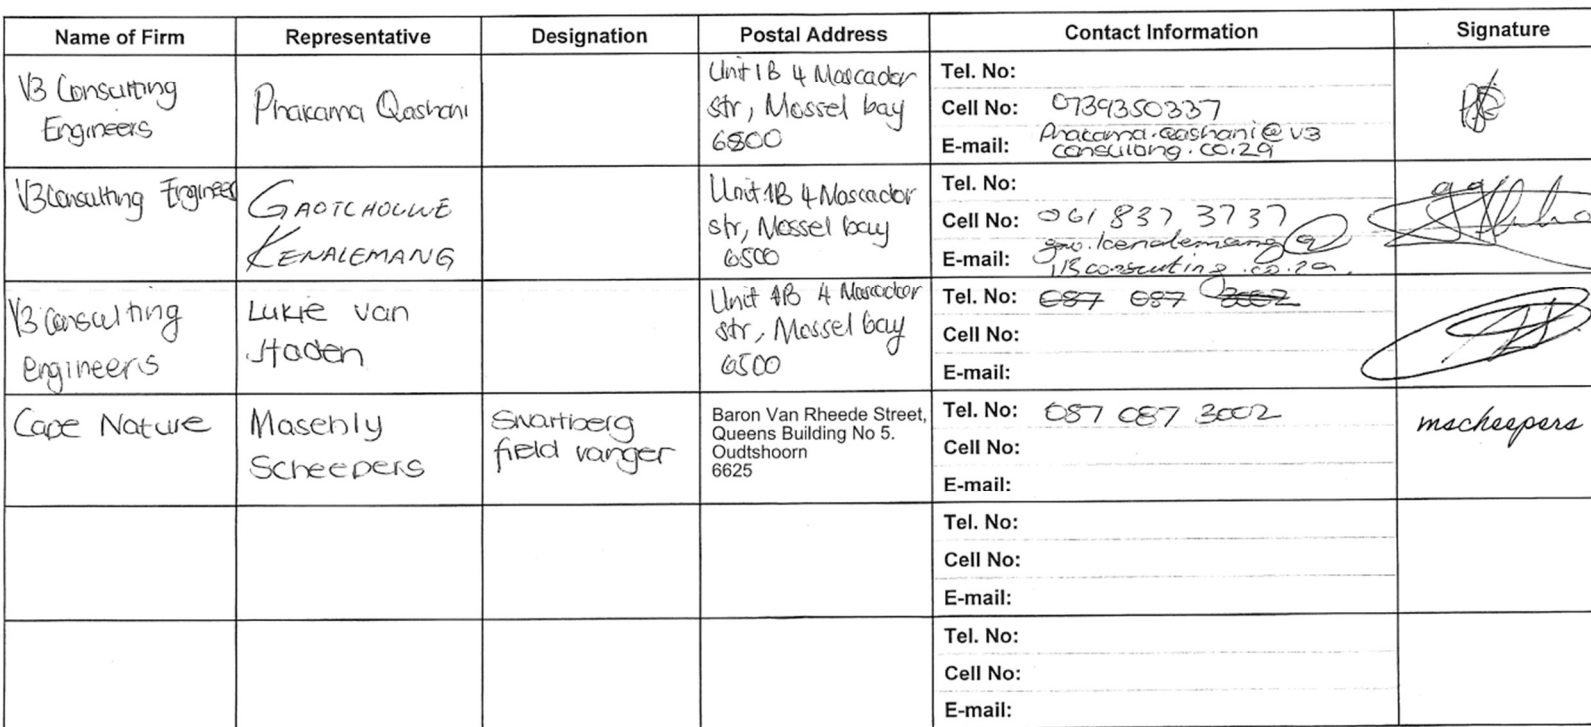 Name of Firm Representative Designation Postal Address Contact Information Signature
V3 Consulting
Engineers
Phakama Qashani
Unit 1B 4 Mascador
str, Mossel bay
6500
Tel. No:
Cell No: 0739350337
E-mail: Phakama.Qashani@v3
consulting.co.za
V3 Consulting Engineers
GAOTCHOLWE
KENALEMANG
Unit 1B 4 Mascador
str, Mossel bay
6500
Tel. No:
Cell No: 061 837 3737
E-mail: gao.kenalemang@
V3consulting.co.za.
V3 Consulting
engineers
Lukie van
Staden
Unit 1B 4 Mascador
str, Mossel bay
6500
Tel. No: 087 087 3002
Cell No:
E-mail:
Cape Nature
Masehly
Scheepers
Swartberg
field ranger
Baron Van Rheede Street,
Queens Building No 5.
Oudtshoorn
6625
Tel. No: 087 087 3002
Cell No:
E-mail:
mscheepers
Tel. No:
Cell No:
E-mail:
Tel. No:
Cell No:
E-mail: